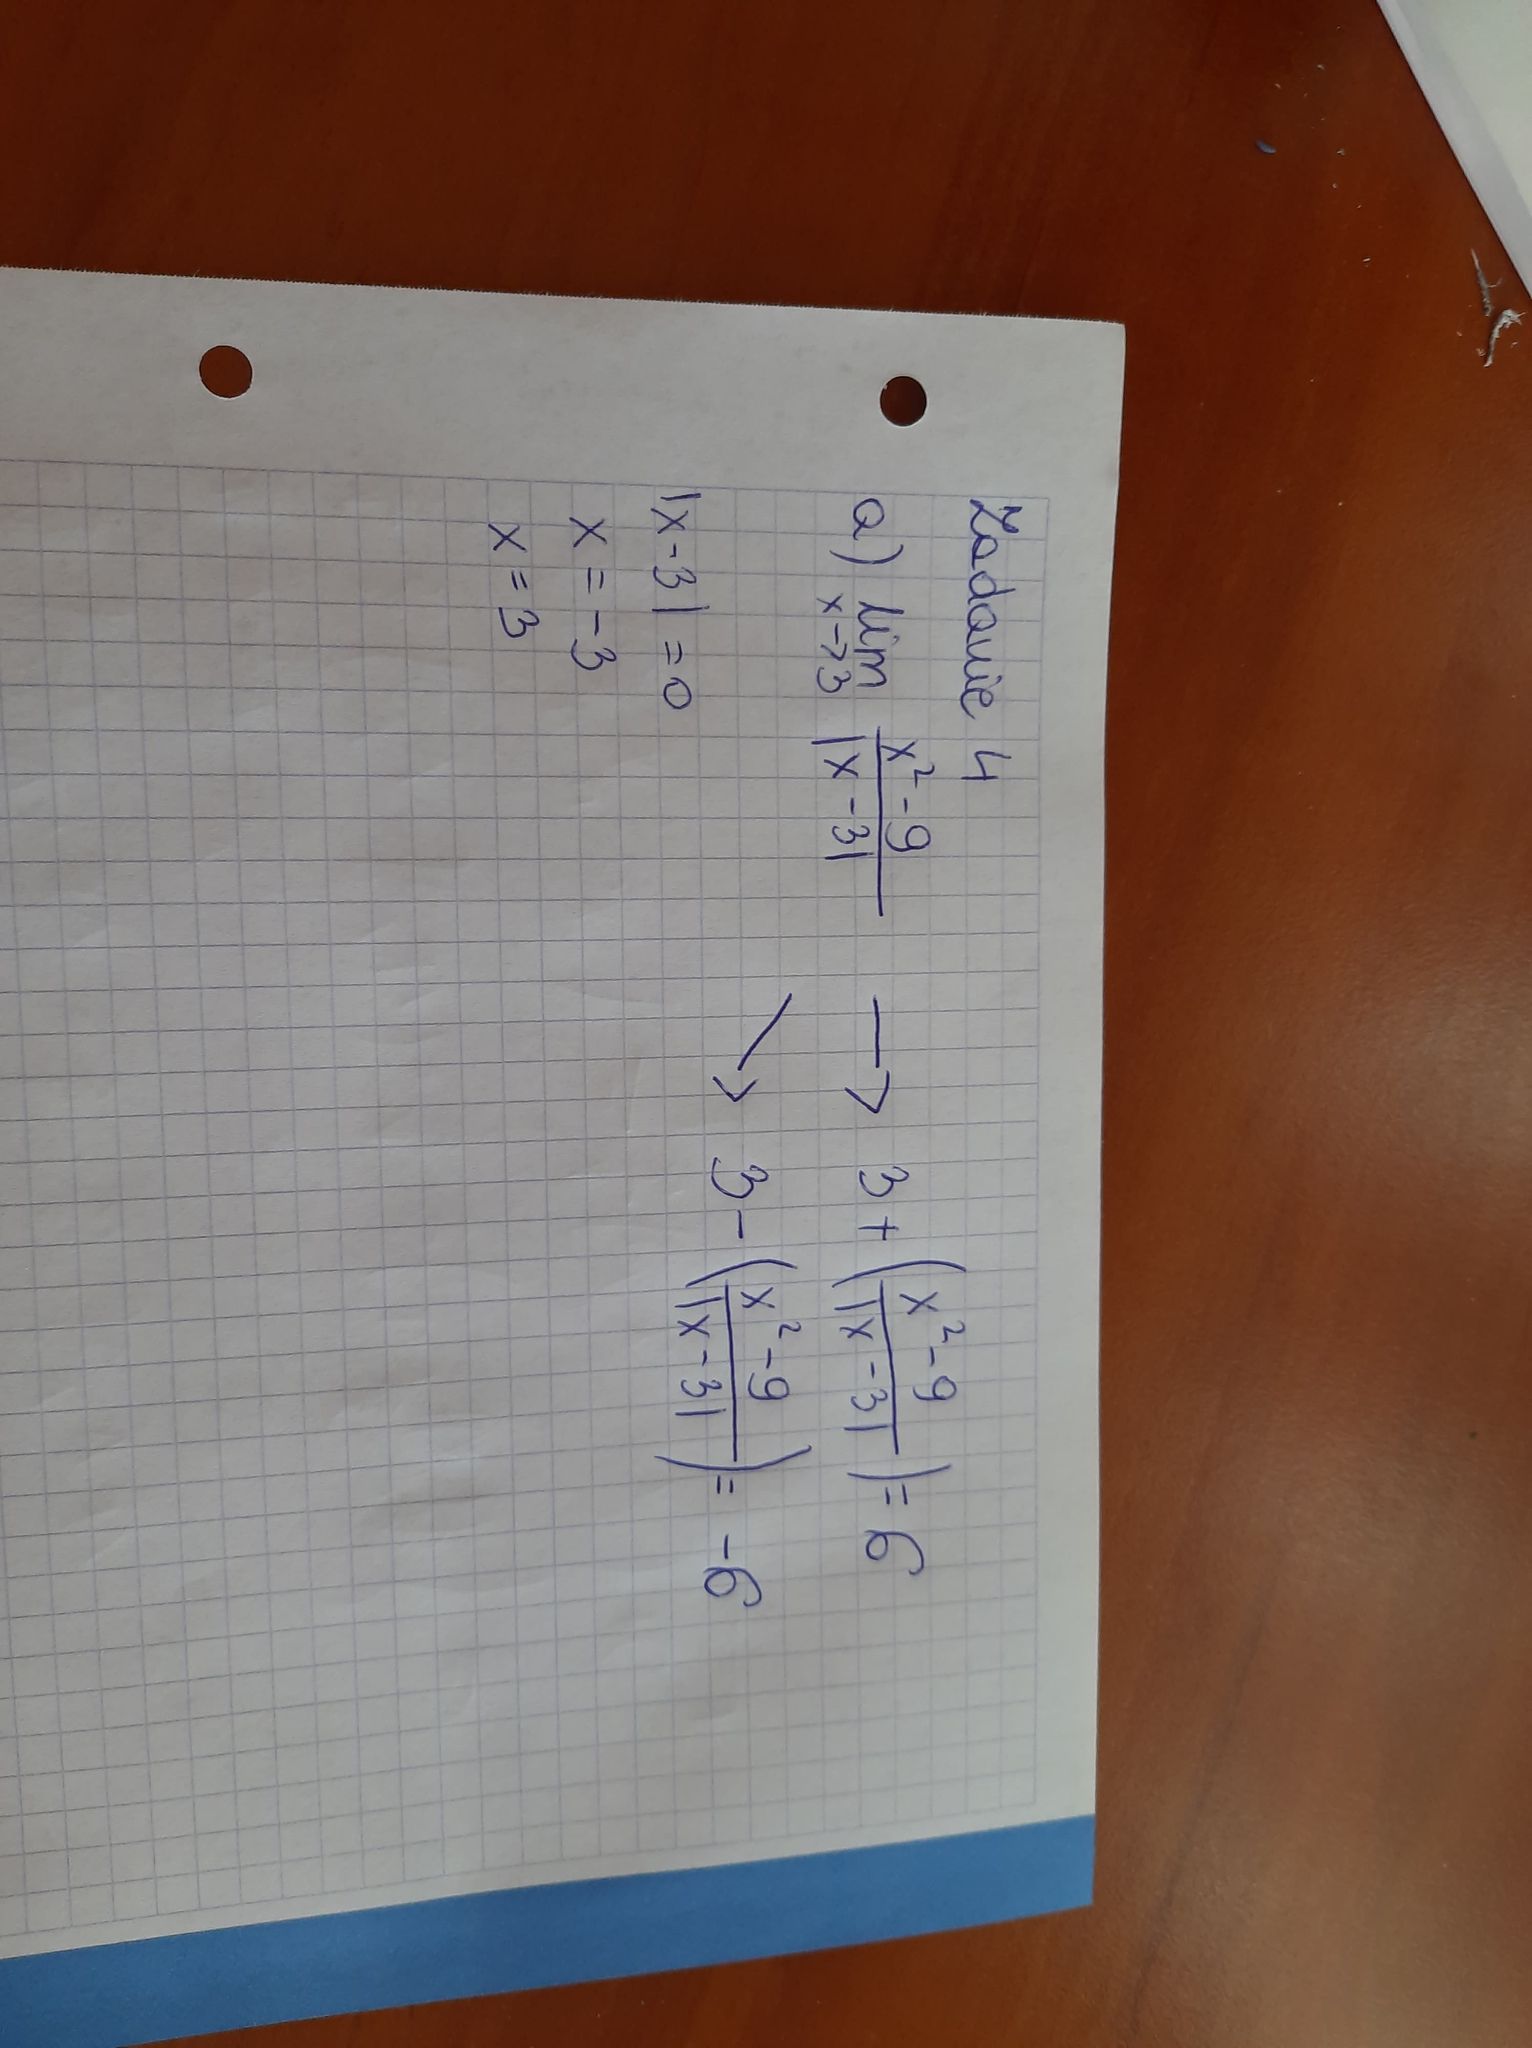 Zadanie 4
a) lim x→3 x²-9 / |x-3| → 3+ (x²-9 / |x-3|) = 6
↘ 3- (x²-9 / |x-3|) = -6
|x-3| = 0
x = -3
x = 3